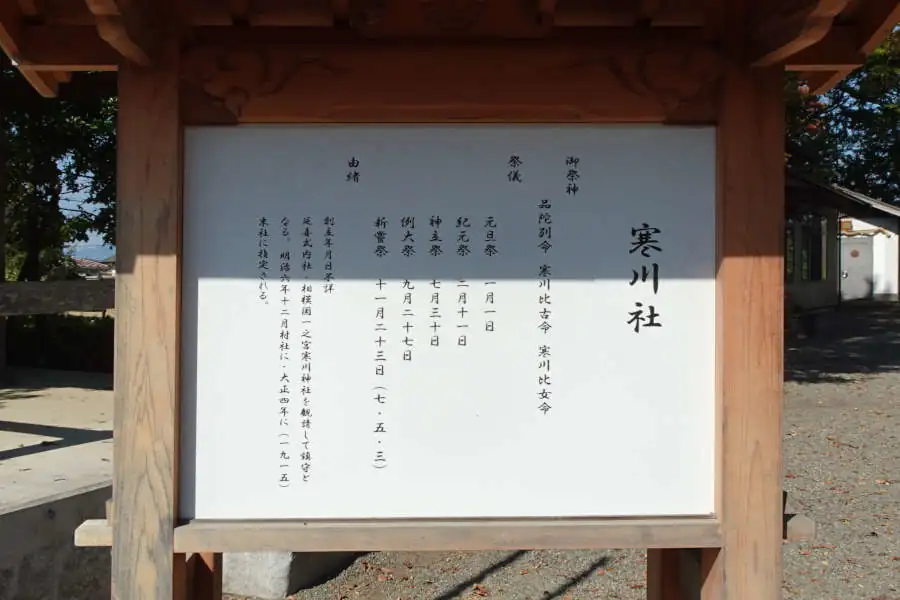 寒川社
御祭神
品陀別命　寒川比古命　寒川比女命
祭儀
元旦祭　一月一日
紀元祭　二月十一日
神主祭　七月三十日
例大祭　九月二十七日
新嘗祭　十一月二十三日（七・五・三）
由緒
創立年月日不詳
延喜式内社・相模国一之宮寒川神社を観請して鎮守と
なる。明治六年十二月村社に・大正四年に（一九一五）
末社に指定される。